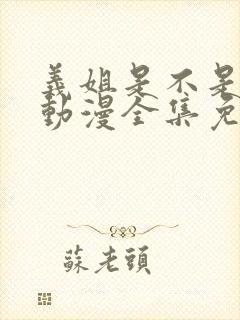 義姐是不是
動漫全集免
蘇老頭